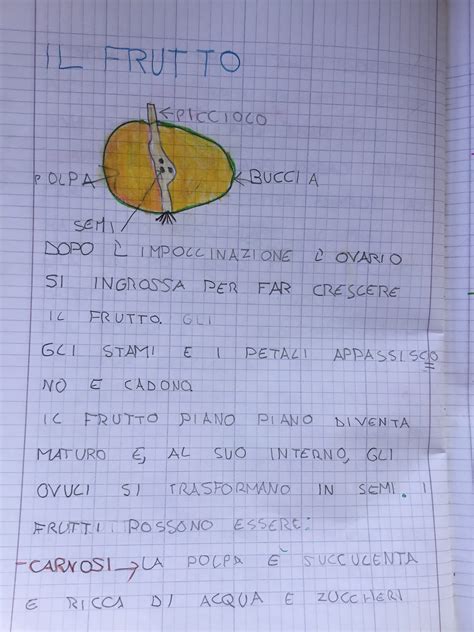 IL FRUTTO
PICCIOLO
POLPA
BUCCIA
SEMI
DOPO L'IMPOLLINAZIONE L'OVARIO
SI INGROSSA PER FAR CRESCERE
IL FRUTTO. GLI
GLI STAMI E I PETALI APPASSISCO
NO E CADONO.
IL FRUTTO PIANO PIANO DIVENTA
MATURO E, AL SUO INTERNO, GLI
OVULI SI TRASFORMANO IN SEMI. I
FRUTTI POSSONO ESSERE:
-CARNOSI→LA POLPA È SUCCULENTA
E RICCA DI ACQUA E ZUCCHERI